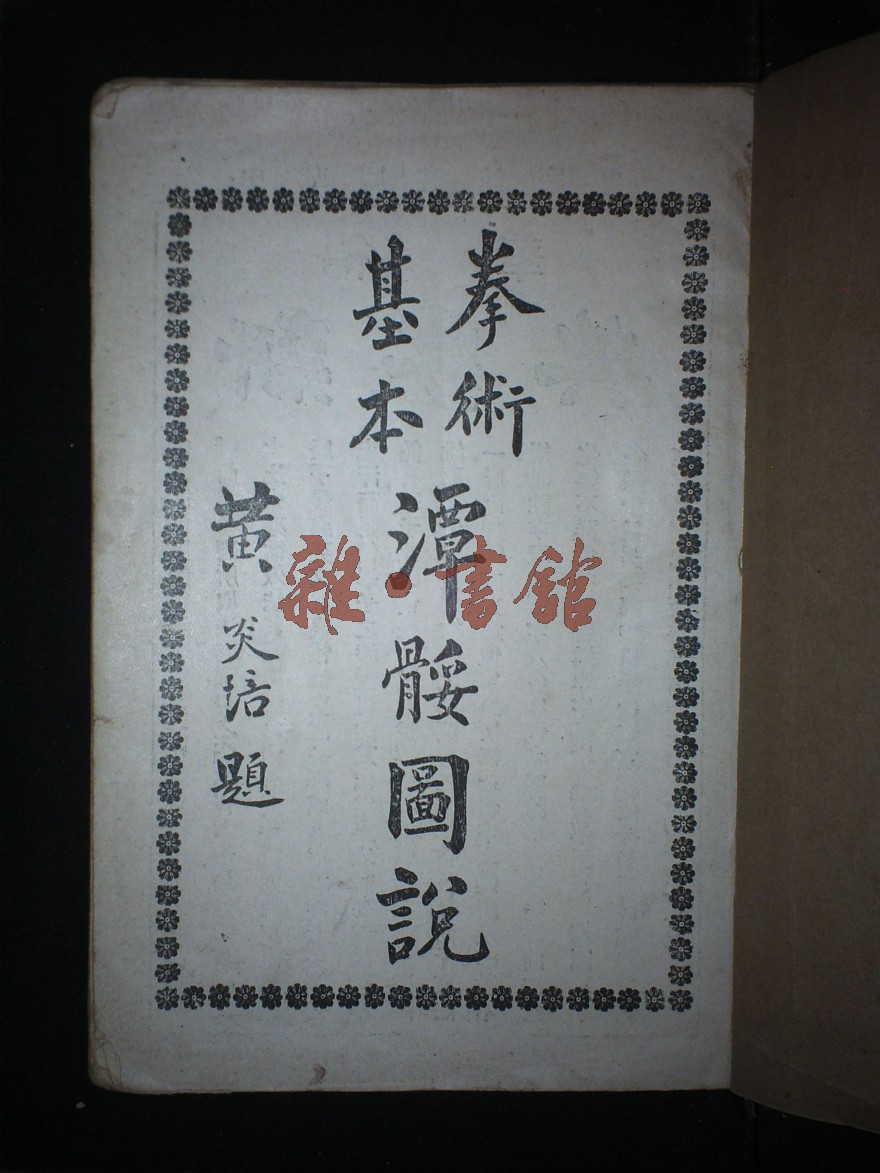 拳術
基本
潭骽圖說
黃炎培題
雜·書館